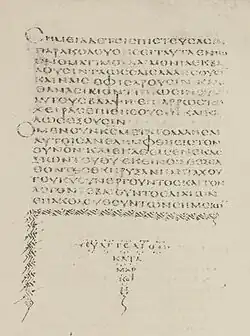 CΗΜΕΙΑΔΕΤΟΙCΠΙCΤΕΥCΑCΙ
ΠΑΡΑΚΟΛΟΥΘΗCΕΙΤΑΥΤΑΕΝΤΩ
ΟΝΟΜΑΤΙΜΟΥΔΑΙΜΟΝΙΑΕΚΒΑ
ΛΟΥCΙΝΓΛΩCCΑΙCΛΑΛΗCΟΥCΙ
ΚΑΙΝΑΙCΟΦΕΙCΑΡΟΥCΙΝΚΑΝ
ΘΑΝΑCΙΜΟΝΤΙΠΙΩCΙΝΟΥΜΗ
ΑΥΤΟΥCΒΛΑΨΗΕΠΙΑΡΡΩCΤΟΥC
ΧΕΙΡΑCΕΠΙΘΗCΟΥCΙΚΑΙΚΑ
ΛΩCΕΞΟΥCΙΝ
ΟΜΕΝΟΥΝΚCΜΕΤΑΤΟΛΑΛΗCΑΙ
ΑΥΤΟΙCΑΝΕΛΗΜΦΘΗΕΙCΤΟΝ
ΟΥΝΟΝΚΑΙΕΚΑΘΙCΕΝΕΚΔΕ
ΞΙΩΝΤΟΥΘΥΕΚΕΙΝΟΙΔΕΕΞΕΛ
ΘΟΝΤΕCΕΚΗΡΥΞΑΝΠΑΝΤΑΧΟΥ
ΤΟΥΚΥCΥΝΕΡΓΟΥΝΤΟCΚΑΙΤΟΝ
ΛΟΓΟΝΒΕΒΑΙΟΥΝΤΟCΔΙΑΤΩΝ
ΕΠΑΚΟΛΟΥΘΟΥΝΤΩΝCΗΜΕΙΩ
ΕΥΑΓΓΕΛΙΟΝ
ΚΑΤΑ
ΜΑΡ
ΚΟ
Ν